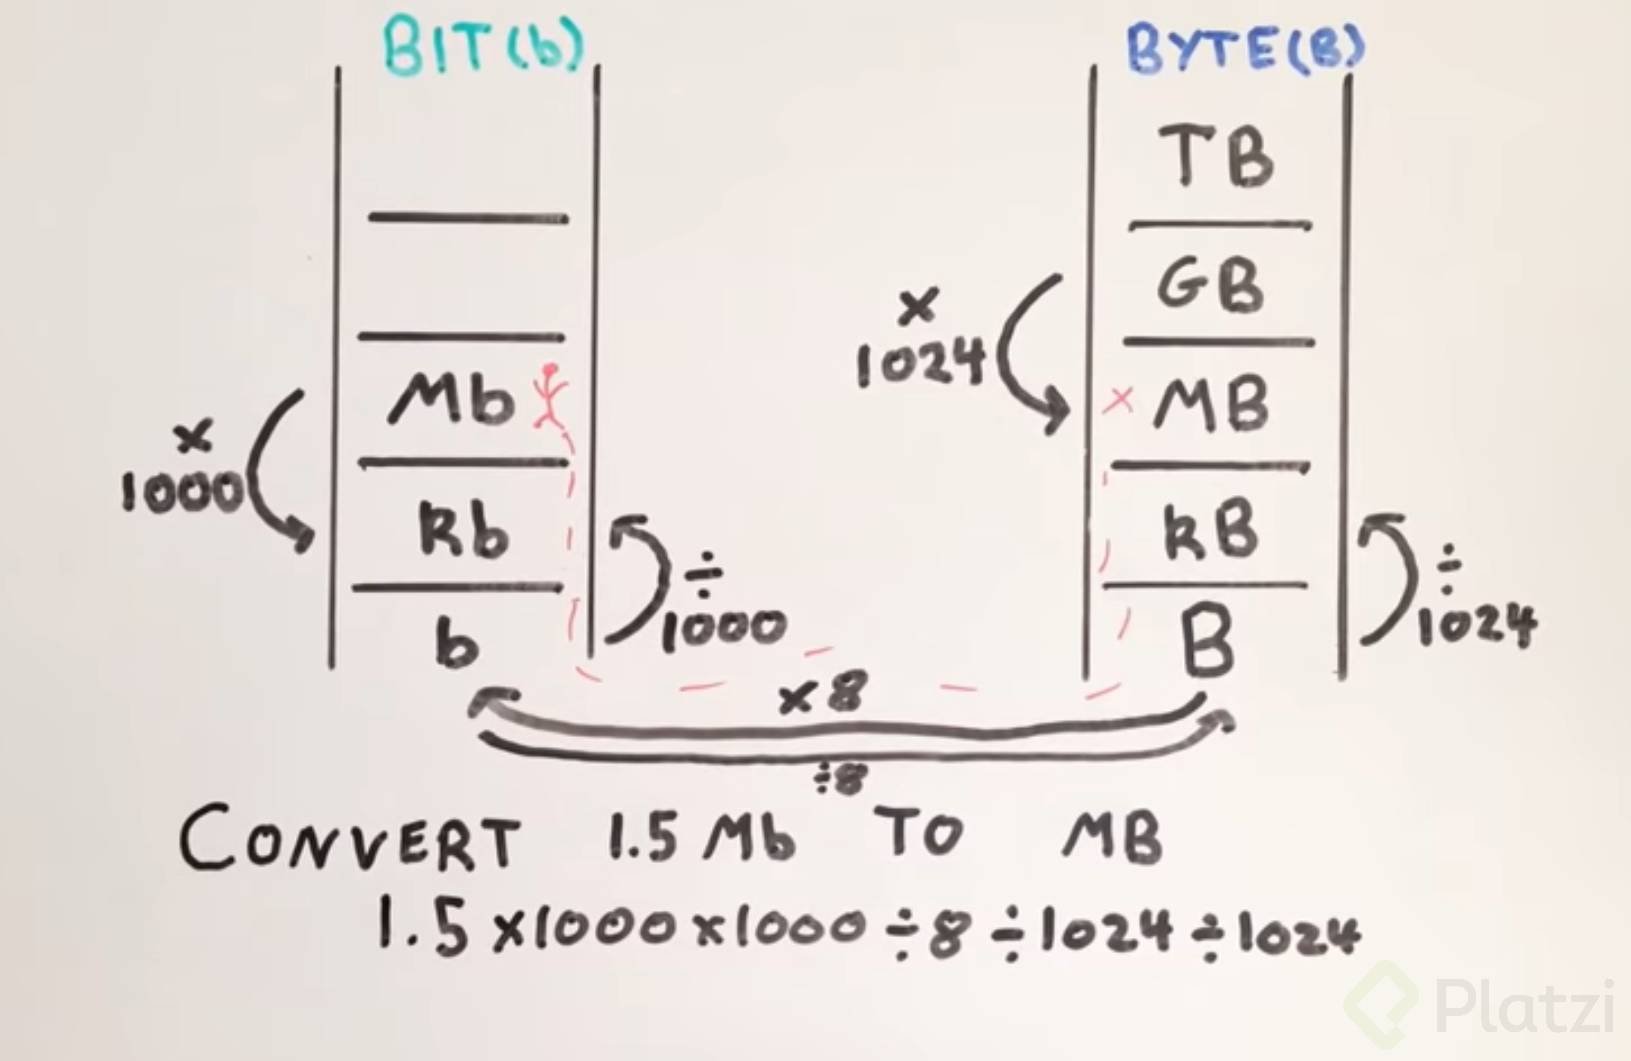 BIT(b)
BYTE(B)
TB
GB
x
1024
Mb
x MB
x
1000
kb
kB
÷
1000
÷
1024
b
B
x8
÷8
CONVERT 1.5 Mb TO MB
1.5 x1000 x1000 ÷8 ÷1024 ÷1024
Platzi